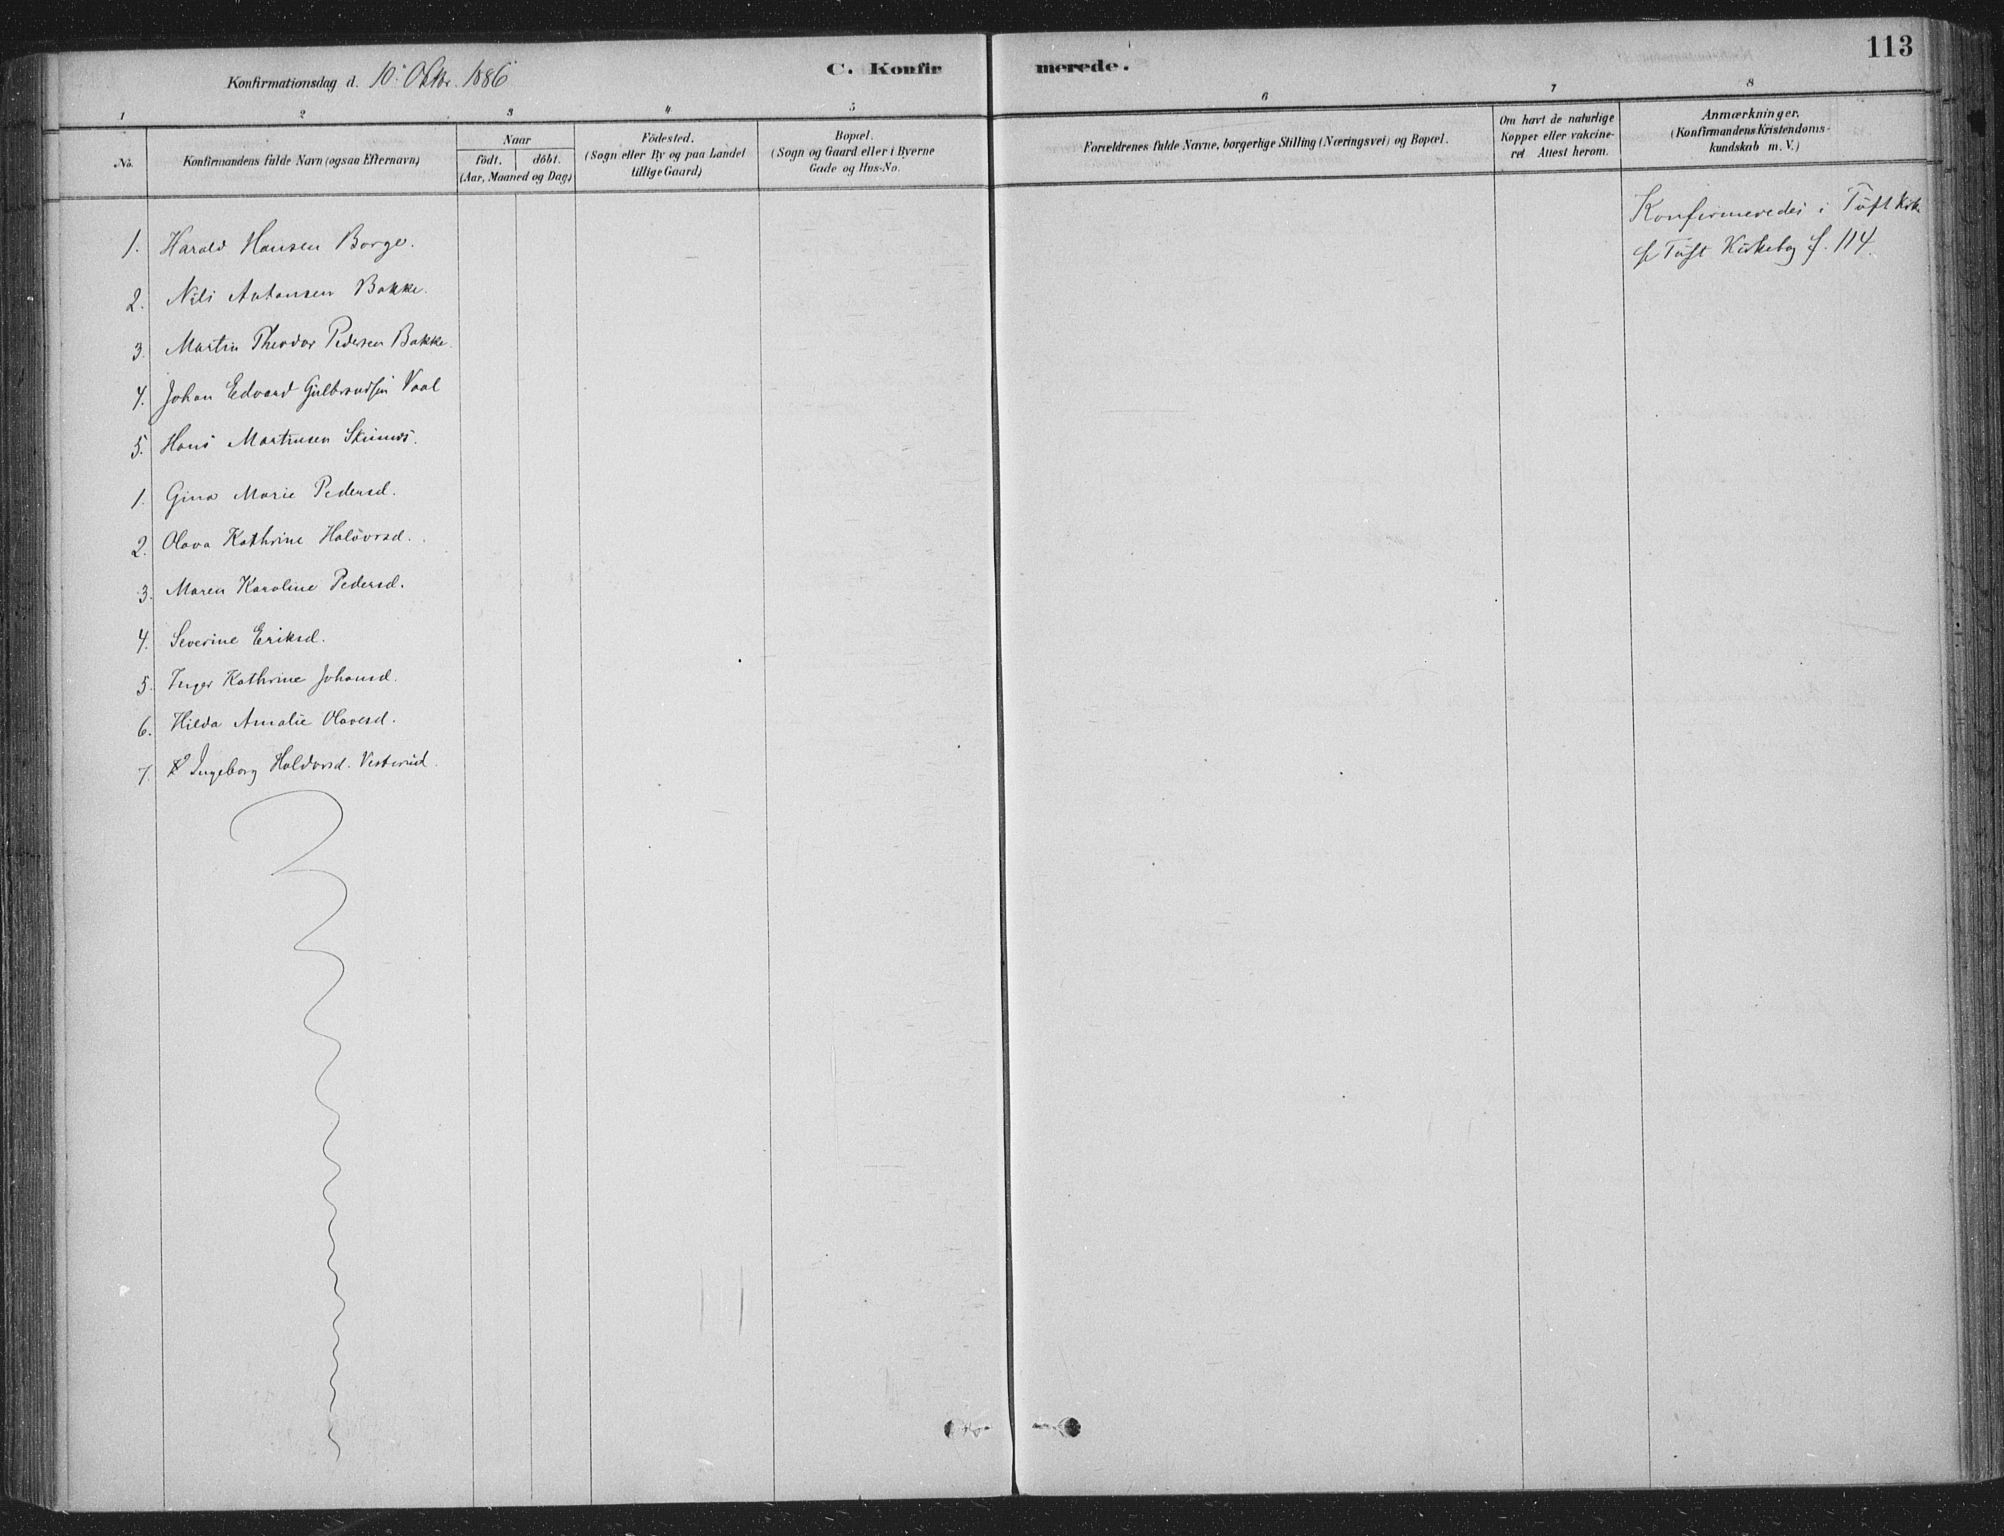 113
Konfirmationsdag d. 10. Oktbr. 1886
C. Konfirmerede.
1 2 3 4 5 6 7 8
No.
Konfirmandens fulde Navn (ogsaa Efternavn)
Naar
födt. döbt.
(Aar, Maaned og Dag)
Födested.
(Sogn eller By og paa Landet
tillige Gaard)
Bopæl.
(Sogn og Gaard eller i Byerne
Gade og Hus-No.
Forældrenes fulde Navne, borgerlige Stilling (Næringsvei) og Bopæl.
Om havt de naturlige
Kopper eller vakcine-
ret Attest herom.
Anmærkninger.
(Konfirmandens Kristendoms-
kundskab m. V.)
Konfirmeredes i Tuft Kirke
Tuft Kirkebog f. 114.
1. Harald Hansen Borge.
2. Nils Antonsen Bakke.
3. Martin Theodor Pedersen Bakke.
4. Johan Edvard Gulbrandsen Vaal
5. Hans Martinsen Skinnes.
1. Gina Marie Pedersd.
2. Olava Kathrine Halvorsd.
3. Maren Karoline Pedersd.
4. Severine Eriksd.
5. Inger Kathrine Johansd.
6. Hilda Amalie Olavesd.
7. Ingeborg Haldorsd. Vesterud.